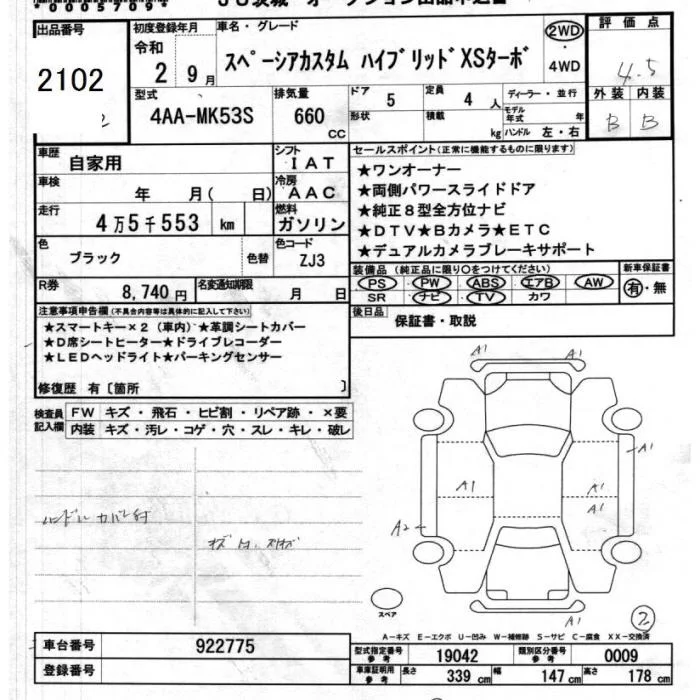 *0005709*
出品番号
2102
初度登録年月
令和
2年 9月
車名・グレード
スペーシアカスタム ハイブリッドXSターボ
2WD
4WD
評価点
4.5
外装 内装
B B
型式
4AA-MK53S
排気量
660 CC
ドア 形状
5
定員 積載
4 人
kg
ディーラー・並行
モデル年式 年
ハンドル 左・右
車歴
自家用
シフト
IAT
車検
年 月( 日)
冷房
AAC
走行
4万5千553 km
燃料
ガソリン
色
ブラック
色替
色コード
ZJ3
R券
8,740円
名変通知期限
月 日
セールスポイント(正常に機能するものに限ります)
★ワンオーナー
★両側パワースライドドア
★純正8型全方位ナビ
★DTV★Bカメラ★ETC
★デュアルカメラブレーキサポート
装備品 (純正品に限り○をつけてください)
PS PW ABS エアB AW
SR ナビ TV カワ
新車保証書
有・無
後日品
保証書・取説
注意事項申告欄(不具合内容等は具体的に記入して下さい)
★スマートキー×2(車内)★革調シートカバー
★D席シートヒーター★ドライブレコーダー
★LEDヘッドライト★パーキングセンサー
修復歴 有〔箇所 〕
検査員記入欄
FW キズ・飛石・ヒビ割・リペア跡・×要
内装 キズ・汚レ・コゲ・穴・スレ・キレ・破レ
ハンドルカバー付
A1 A1
A1
A1 A1
A1
A2
A1
スペア
2
A-キズ E-エクボ U-凹み W-補修跡 S-サビ C-腐食 XX-交換済
車台番号
922775
登録番号
型式指定番号 参考
19042
類別区分番号 参考
0009
車庫証明用 参考
長さ 339 cm
幅 147 cm
高さ 178 cm